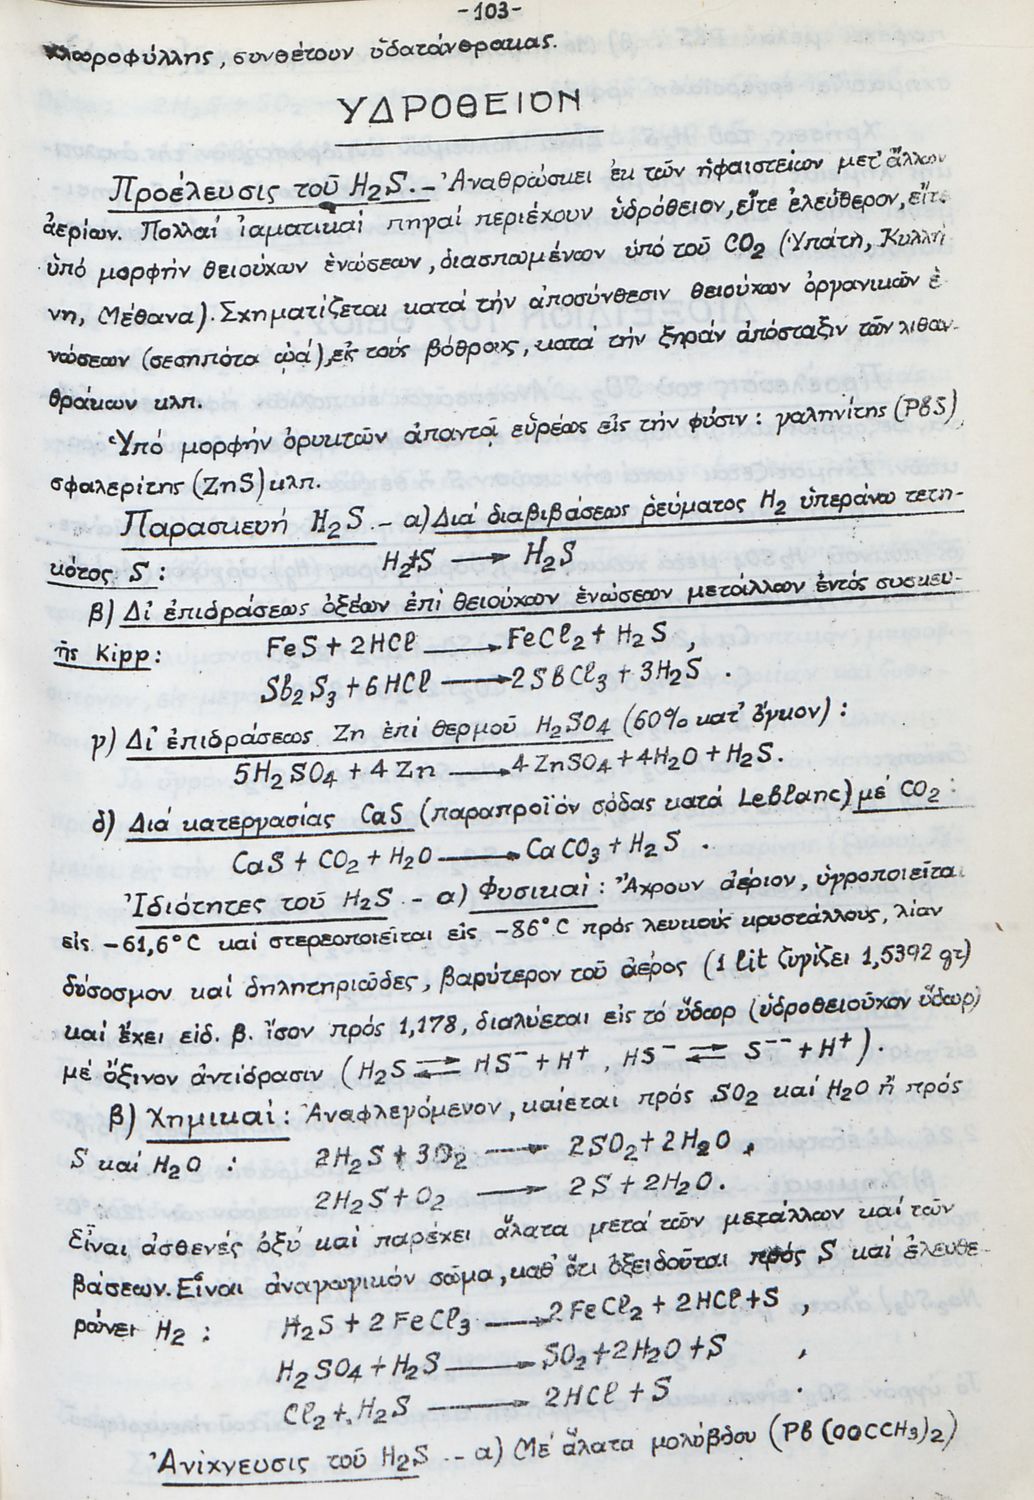 -103-
χλωροφύλλης, συνθέτουν ὑδατάνθρακας.
ΥΔΡΟΘΕΙΟΝ
Προέλευσις τοῦ H₂S.- Ἀναθρώσκει ἐκ τῶν ἡφαιστείων μετ' ἄλλων
ἀερίων. Πολλαί ἰαματικαί πηγαί περιέχουν ὑδρόθειον, εἴτε ἐλεύθερον, εἴτε
ὑπό μορφήν θειούχων ἑνώσεων, διασπωμένων ὑπό τοῦ CO₂ (Ὑπάτη, Κυλλή
νη, Μέθανα). Σχηματίζεται κατά τήν ἀποσύνθεσιν θειούχων ὀργανικῶν ἑ-
νώσεων (σεσηπότα ὠά), εἰς τούς βόθρους, κατά τήν ξηράν ἀπόσταξιν τῶν λιθαν-
θράκων κλπ.
Ὑπό μορφήν ὀρυκτῶν ἀπαντᾶ εὑρέως εἰς τήν φύσιν: γαληνίτης (PbS)
σφαλερίτης (ZnS) κλπ.
Παρασκευή H₂S - α) Διά διαβιβάσεως ρεύματος H₂ ὑπεράνω τετη-
κότος S: H₂+S → H₂S
β) Δι' ἐπιδράσεως ὀξέων ἐπί θειούχων ἑνώσεων μετάλλων ἐντός συσκευ-
ῆς Kipp: FeS + 2HCl → FeCl₂ + H₂S,
Sb₂S₃ + 6HCl → 2SbCl₃ + 3H₂S.
γ) Δι' ἐπιδράσεως Zn ἐπί θερμοῦ H₂SO₄ (60% κατ' ὄγκον):
5H₂SO₄ + 4Zn → 4ZnSO₄ + 4H₂O + H₂S.
δ) Διά κατεργασίας CaS (παραπροϊόν σόδας κατά Leblanc) μέ CO₂:
CaS + CO₂ + H₂O → CaCO₃ + H₂S.
Ἰδιότητες τοῦ H₂S.- α) Φυσικαί: Ἄχρουν ἀέριον, ὑγροποιεῖται
εἰς -61,6°C καί στερεοποιεῖται εἰς -86°C πρός λευκούς κρυστάλλους, λίαν
δύσοσμον καί δηλητηριῶδες, βαρύτερον τοῦ ἀέρος (1 lit ζυγίζει 1,5392 gr)
καί ἔχει εἰδ. β. ἴσον πρός 1,178, διαλύεται εἰς τό ὕδωρ (ὑδροθειοῦχον ὕδωρ)
μέ ὄξινον ἀντίδρασιν (H₂S ⇌ HS⁻ + H⁺, HS⁻ ⇌ S⁻⁻ + H⁺).
β) Χημικαί: Ἀναφλεγόμενον, καίεται πρός SO₂ καί H₂O ἤ πρός
S καί H₂O: 2H₂S + 3O₂ → 2SO₂ + 2H₂O,
2H₂S + O₂ → 2S + 2H₂O.
Εἶναι ἀσθενές ὀξύ καί παρέχει ἅλατα μετά τῶν μετάλλων καί τῶν
βάσεων. Εἶναι ἀναγωγικόν σῶμα, καθ' ὅτι ὀξειδοῦται πρός S καί ἐλευθε-
ρώνει H₂: H₂S + 2FeCl₃ → 2FeCl₂ + 2HCl + S,
H₂SO₄ + H₂S → SO₂ + 2H₂O + S,
Cl₂ + H₂S → 2HCl + S.
Ἀνίχνευσις τοῦ H₂S.- α) Μέ ἅλατα μολύβδου (Pb(OOCCH₃)₂)